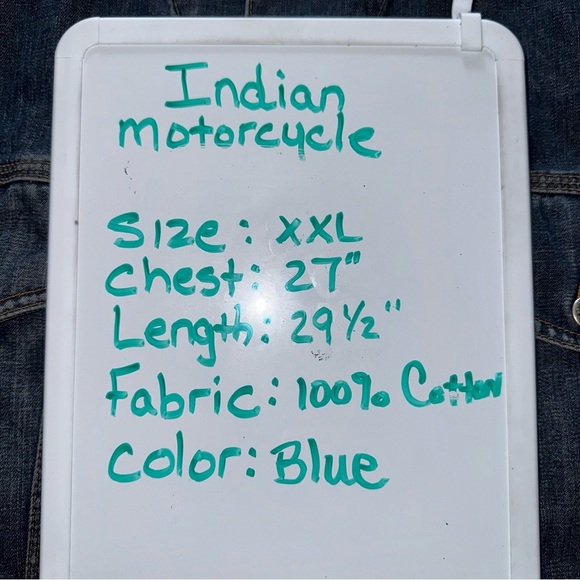 Indian
motorcycle
Size: XXL
Chest: 27"
Length: 29 1/2"
Fabric: 100% Cotton
Color: Blue